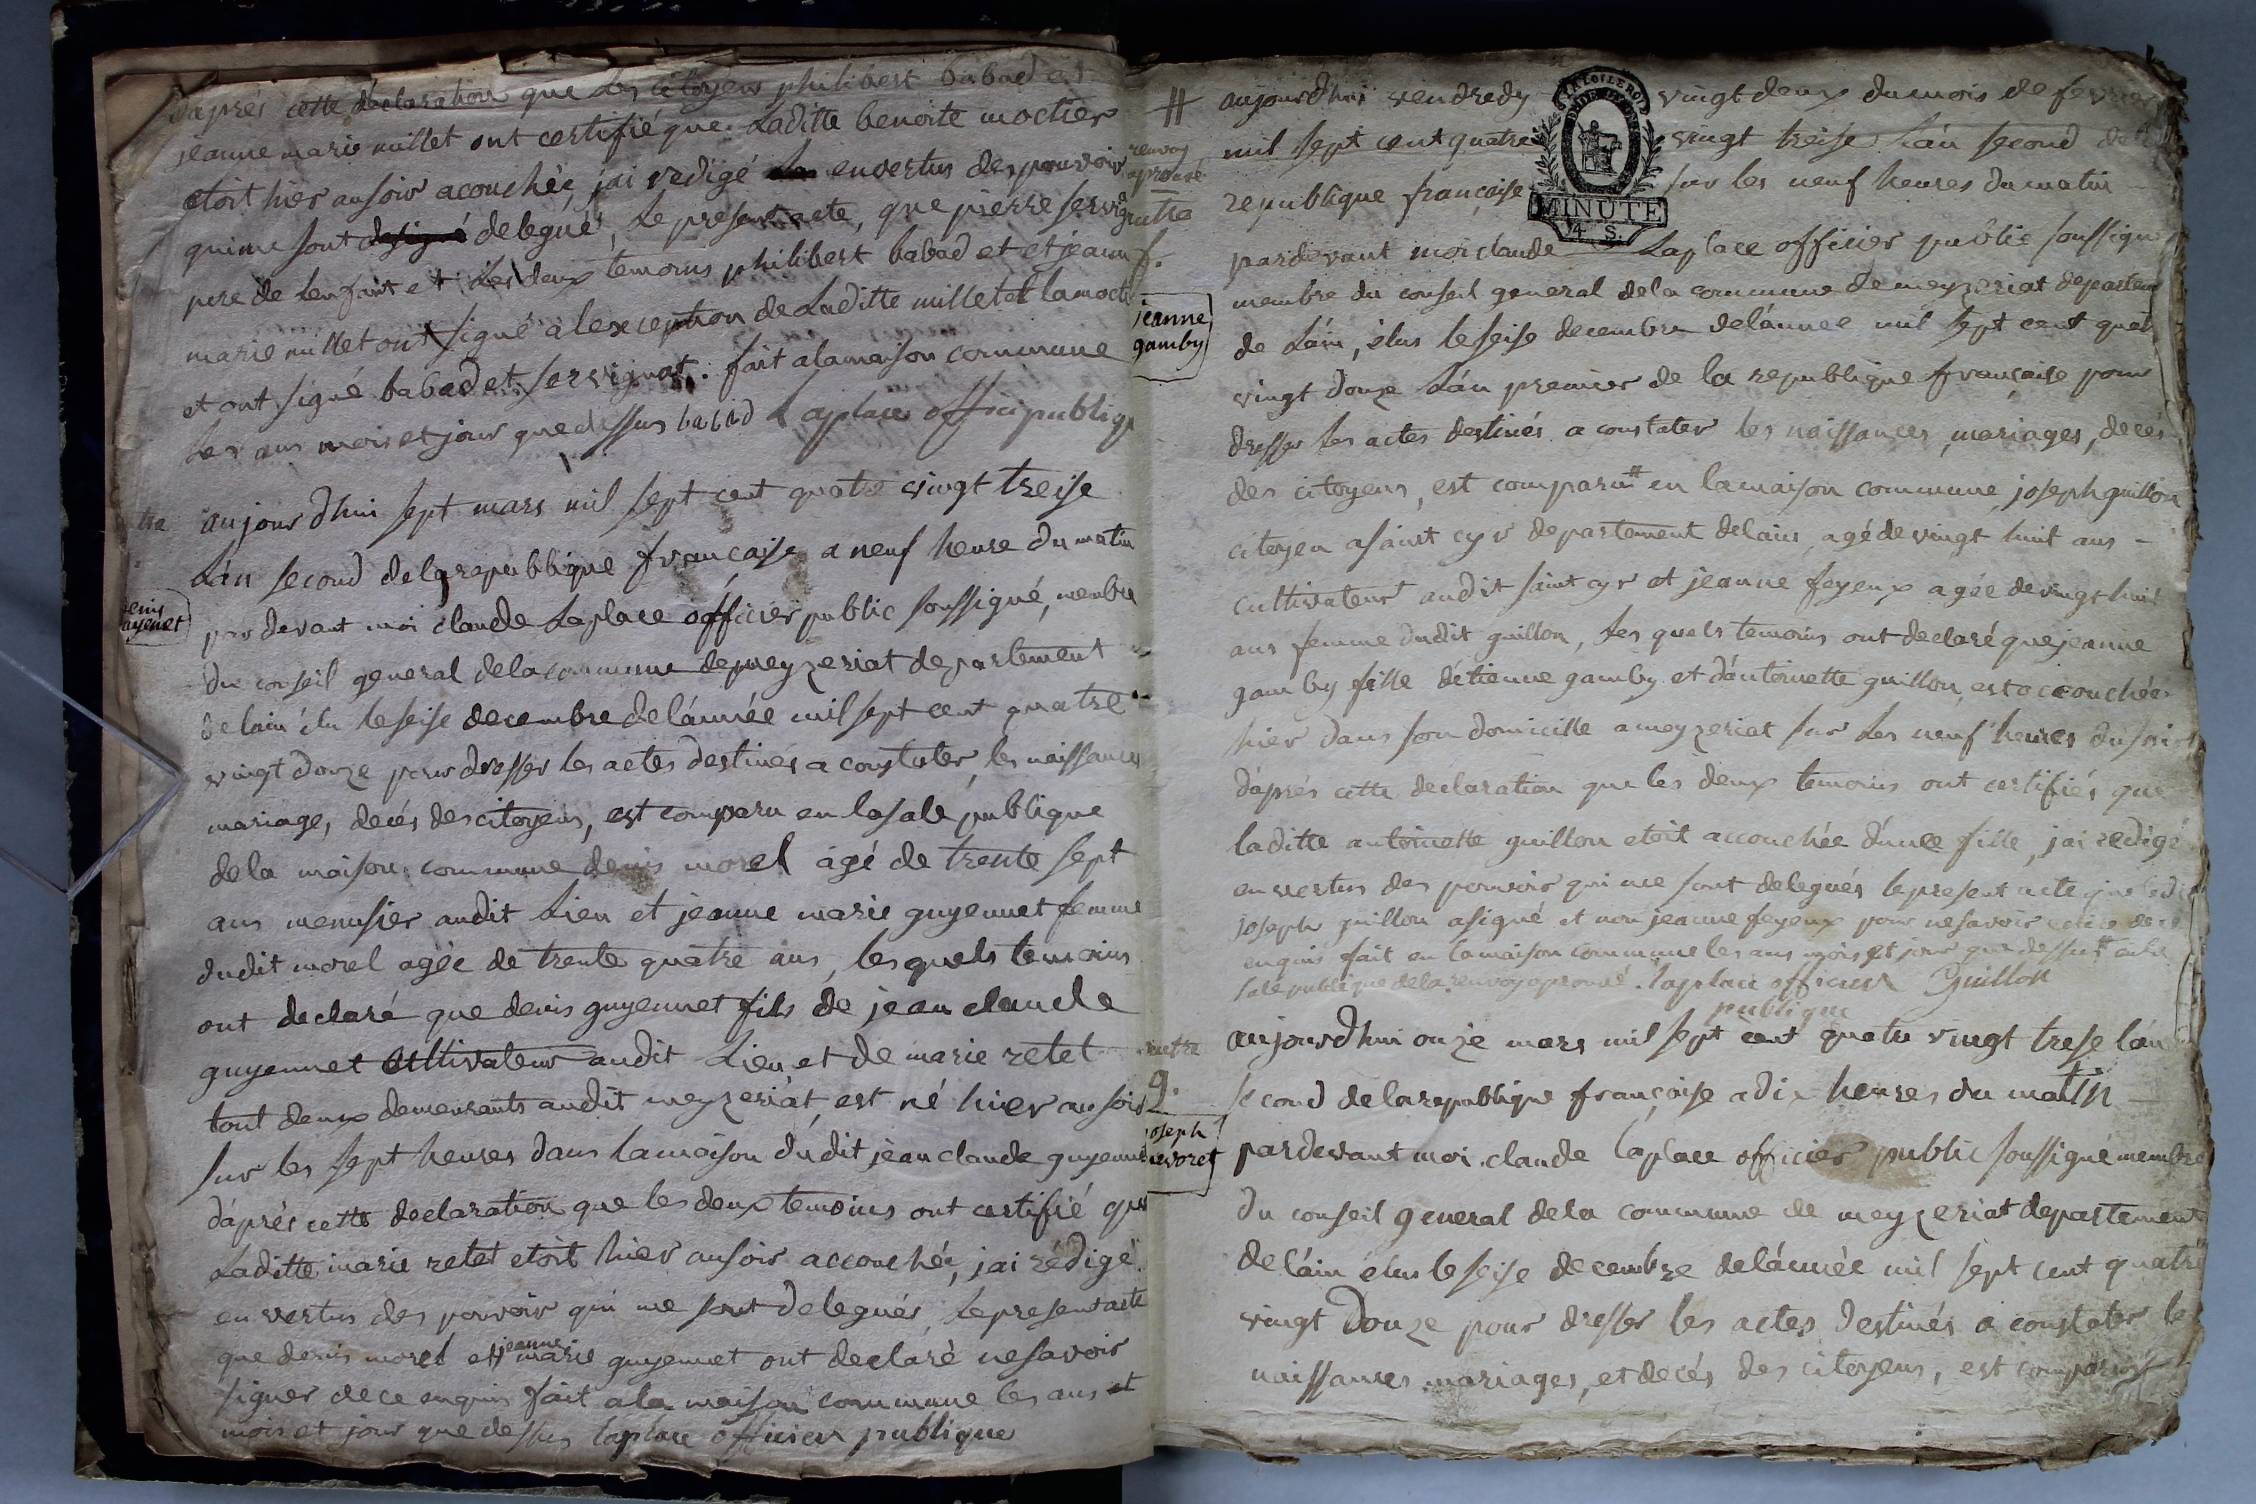 d'aprés cette déclaration que les citoyens philibert babad et
jeanne marie millet ont certifié que Laditte benoite moctier
etoit hier au soir acouchée, j'ai redigé en vertus des pouvoir
qui me sont delegué, Le present acte, que pierre servignat
pere de Lenfant et Les deux temoins philibert babad et et jeanne
marie millet ont signé a lexception de Laditte millet et la moctier
et ont signé babad et servignat. fait a la maison commune
Les ans mois et jour que dessus babad Laplace offici publique
tre
aujourdhui sept mars mil sept cent quatre vingt treise
L'án second de la republique française a neuf heure du matin
denis
guyenet
par devant moi claude Laplace officier public soussigné, membre
du conseil general de la commune de meyzeriat departement
de lain élu le seise decembre de l'année mil sept cent quatre
vingt douze pour dresser les actes destinés a constater, les naissances
mariage, decés des citoyens, est comparu en la sale publique
de la maison commune denis morel agé de trente sept
ans menusier audit Lieu et jeanne marie guyennet femme
dudit morel agée de trente quatre ans, les quels temoins
ont declaré que denis guyennet fils de jean claude
guyennet cultivateur audit Lieu et de marie retet
tout deux demeurants audit meyzeriàt, est né hier au soir
sur les sept heures dans la maison dudit jean claude guyennet
d'aprés cette declaration que les deux temoins ont certifié que
Laditte marie retet etoit hier au soir accouchée, j'ai rédigé
en vertus des pouvoir qui me sont delegués, le present acte
que denis morel et jeanne marie guyennet ont declaré ne savoir
signer de ce enquis fait a la maison commune les ans et
mois et jour que dessus laplace officier publique
# aujourdhui vendredy vingt deux du mois de fevrier
renvoy
aprouvé
mil sept cent quatre vingt treise L'án second de la
republique française sur les neuf heures du matin
MINUTE
4 S.
f.
pardevant moi claude Laplace officier publié soussigné
membre du conseil general de la commune de meyzeriat departem
jeanne
gamby
de L'áin, élus le seise decembre de l'année mil sept cent quatre
vingt douze L'án premier de la republique française pour
dresser les actes destinés a constater les naissances, mariages, decés
des citoyens, est comparu # en la maison commune joseph guillon
citoyen a saint cyr departement de lain, agé de vingt huit ans -
cultivateur audit saint cyr et jeanne feyeux agée de vingt huit
ans femme dudit guillon, les quels temoins ont declaré que jeanne
gamby fille d'étienne gamby et d'antoinette guillon, est accouchée
hier dans son domicille a meyzeriat sur Les neuf heures du soir
d'aprés cette declaration que les deux temoins ont certifiés que
laditte antoinette guillon etoit accouchée d'une fille, j'ai redigé
en vertus des pouvoir qui me sont delegués le present acte que ledit
joseph guillon a signé et non jeanne feyeux pour ne savoir de ce
enquis fait en la maison commune les ans mois et jour que dessus #
sale publique de la renvoy aprouvé. laplace officier Guillon
publique
aujourdhui onze mars mil sept cent quatre vingt trese l'án
g.
second de la republique française a dix heures du matin
joseph
nevoret
pardevant moi claude laplace officier public soussigné membre
du conseil general de la commune de meyzeriat departement
de l'áin élus le seise decembre de l'ánnée mil sept cent quatre
vingt Douze pour dresser les actes destinés a constater le
naissances mariages, et decés des citoyens, est comparu